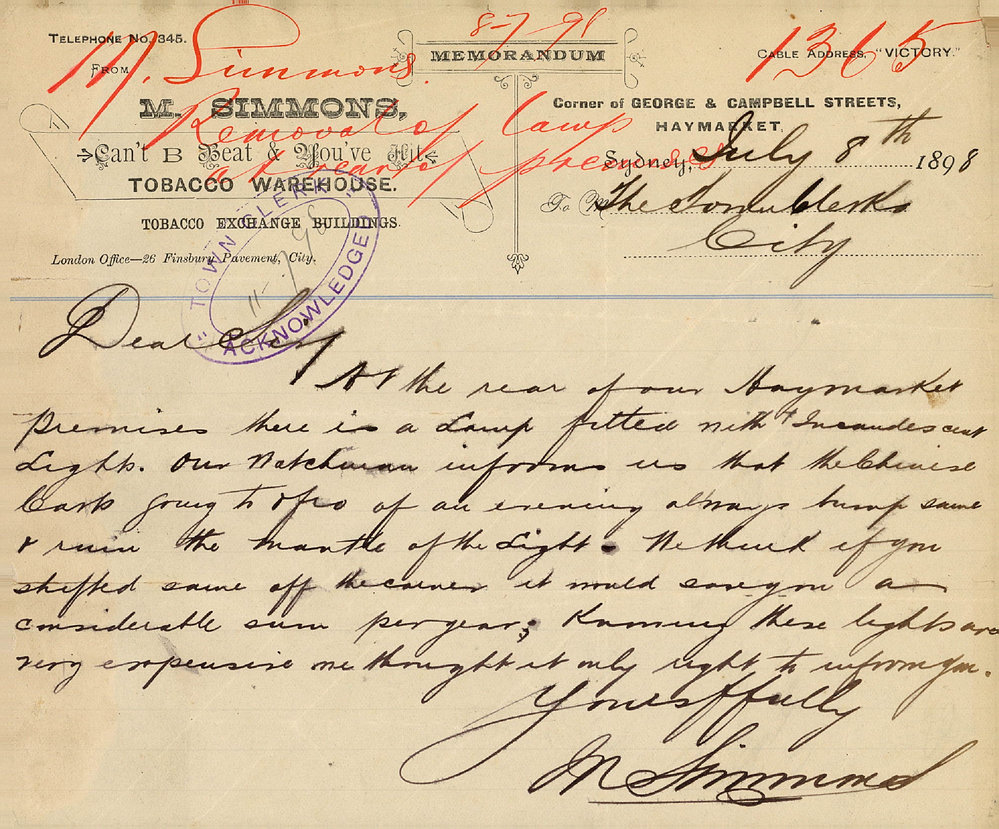 TELEPHONE No. 345.
FROM
M. SIMMONS,
Can't B Beat & You've Hit
TOBACCO WAREHOUSE.
TOBACCO EXCHANGE BUILDINGS.
London Office—26 Finsbury Pavement, City.
MEMORANDUM
CABLE ADDRESS, "VICTORY."
Corner of GEORGE & CAMPBELL STREETS,
HAYMARKET,
Sydney, July 8th 1898
To M The Town Clerk
City
8-7-98
1365
M. Simmons.
Removal of lamp
at rear of premises
TOWN CLERK
11-7-98
ACKNOWLEDGED
Dear Sir,
At the rear of our Haymarket
Premises there is a Lamp fitted with Incandescent
Light. Our Watchman informs us that the Chinese
Carts going to & fro of an evening always bump same
& ruin the mantle of the Light. We think if you
shifted same off the corner it would save you a
considerable sum per year; Knowing these lights are
very expensive we thought it only right to inform you.
Yours ffully
M Simmons